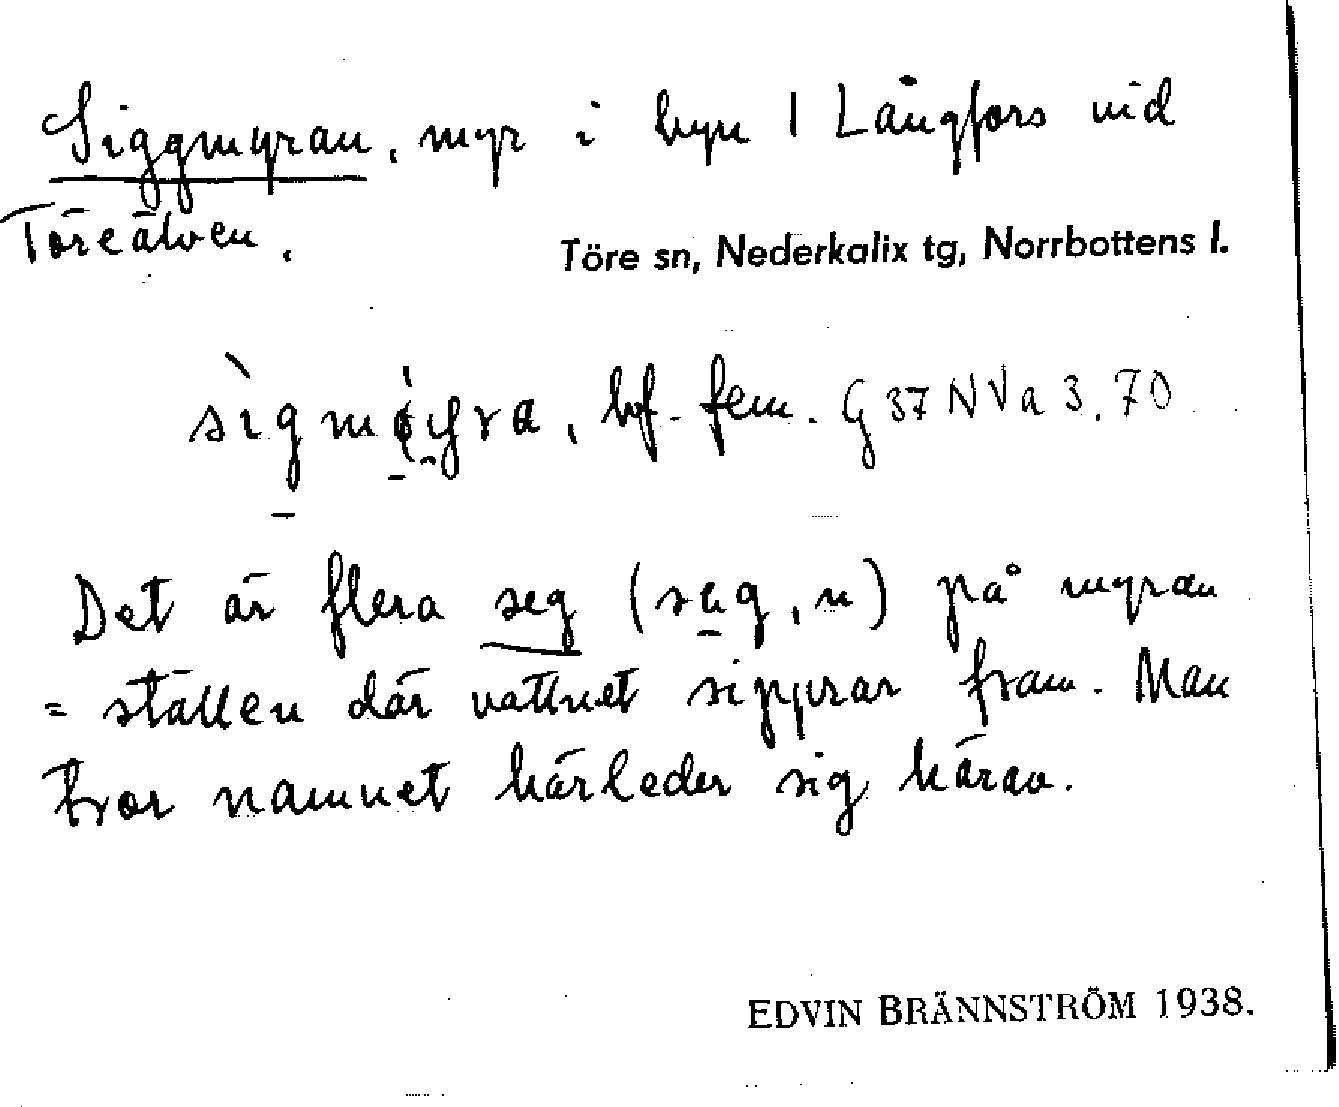 Siggmyran, myr i byn 1 Långfors vid
Töreälven.
Töre sn, Nederkalix tg, Norrbottens l.
bf. fem. G 37 NVa 3.70
Det är flera seg (sag, n) på myran
= ställen där vattnet sipprar fram. Man
tror namnet härleder sig härav.
EDVIN BRÄNNSTRÖM 1938.